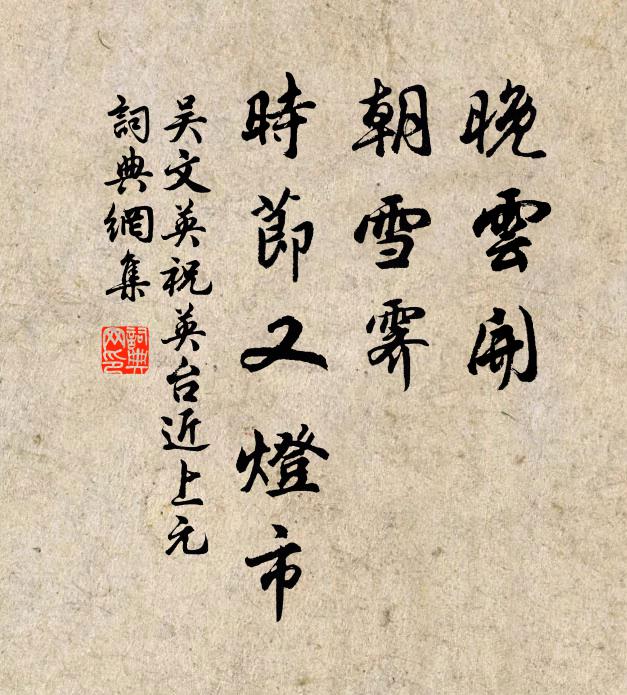 晚雲開
朝雪霽
時節又燈市
吴文英祝英台近上元
詞典網集
詞典
网印